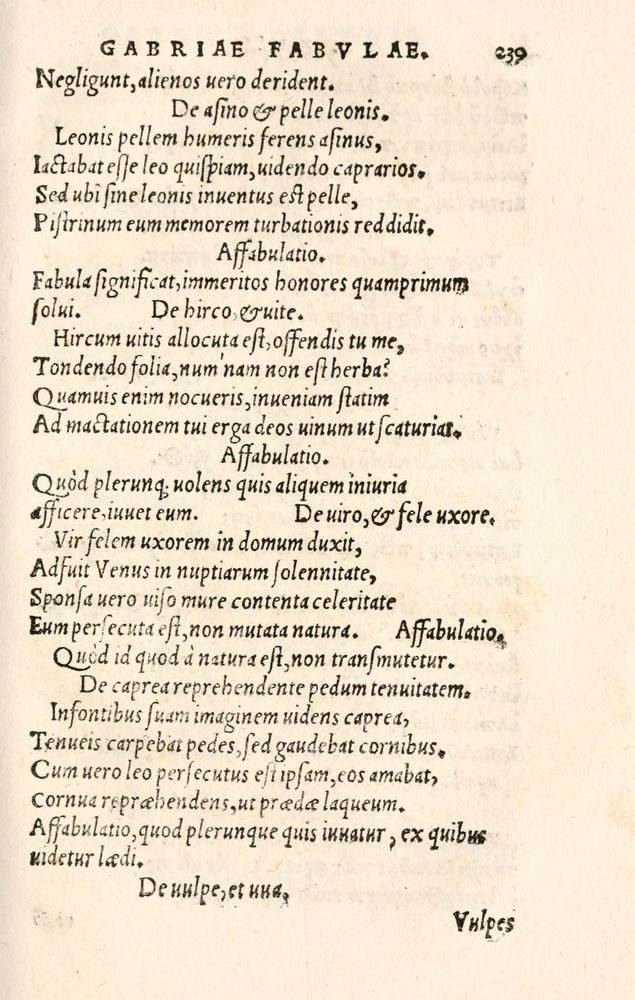 GABRIAE FABVLAE. 239
Negligunt, alienos uero derident.
De asino & pelle leonis.
Leonis pellem humeris ferens asinus,
Iactabat esse leo quispiam, uidendo caprarios.
Sed ubi sine leonis inuentus est pelle,
Pistrinum eum memorem turbationis reddidit.
Affabulatio.
Fabula significat, immeritos honores quamprimum
solui. De hirco, & uite.
Hircum uitis allocuta est, offendis tu me,
Tondendo folia, num'nam non est herba?
Quamuis enim nocueris, inueniam statim
Ad mactationem tui erga deos uinum ut scaturiat.
Affabulatio.
Quòd plerunq; uolens quis aliquem iniuria
afficere, iuuet eum. De uiro, & fele uxore.
Vir felem uxorem in domum duxit,
Adfuit Venus in nuptiarum solennitate,
Sponsa uero uiso mure contenta celeritate
Eum persecuta est, non mutata natura. Affabulatio.
Quòd id quod à natura est, non transmutetur.
De caprea reprehendente pedum tenuitatem.
In fontibus suam imaginem uidens caprea,
Tenueis carpebat pedes, sed gaudebat cornibus.
Cum uero leo persecutus est ipsam, eos amabat,
Cornua repræhendens, ut prædæ laqueum.
Affabulatio, quod plerunque quis iuuatur, ex quibus
uidetur lædi.
De uulpe, et uua.
Vulpes